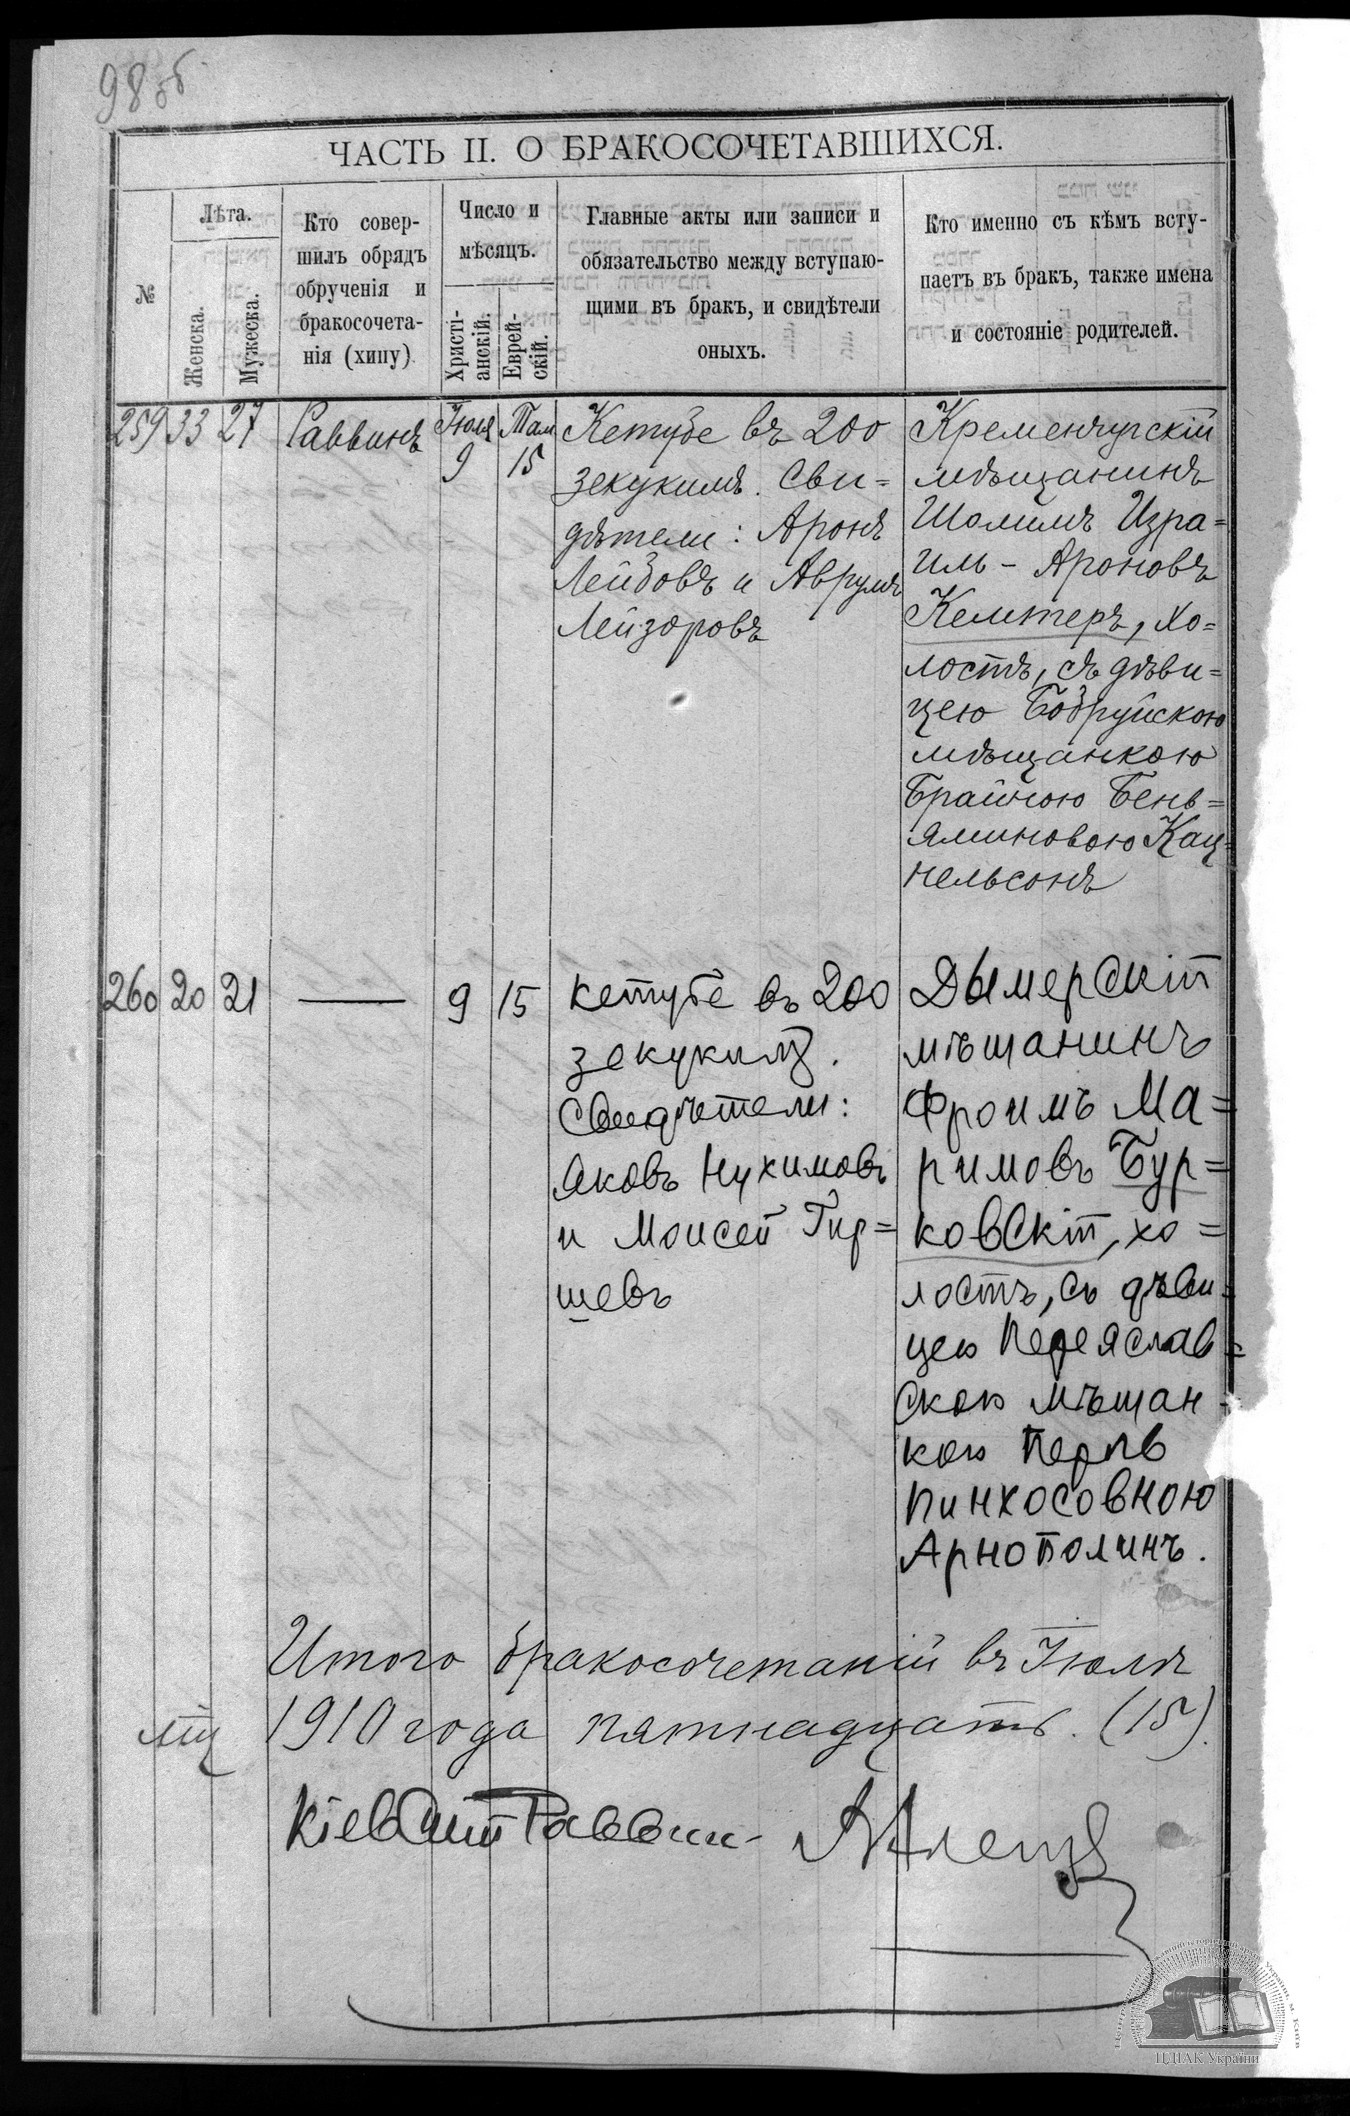 98 об
ЧАСТЬ II. О БРАКОСОЧЕТАВШИХСЯ.
№
Лѣта.
Женска.
Мужеска.
Кто совер-
шилъ обрядъ
обрученія и
бракосочета-
нія (хипу)
Число и
мѣсяцъ.
Христі-
анскій.
Еврей-
скій.
Главные акты или записи и
обязательство между вступаю-
щими въ бракъ, и свидѣтели
оныхъ.
Кто именно съ кѣмъ всту-
паетъ въ бракъ, также имена
и состояніе родителей.
259 33 27 Раввинъ Іюля 9 Там 15
Кетубе въ 200
зекукимъ. Сви=
дѣтели: Аронъ
Лейбовъ и Аврумъ
Лейзоровъ
Кременчугскій
мѣщанинъ
Шолимъ Изра=
иль - Ароновъ
Келмтеръ, хо=
лостъ, съ дѣви=
цею Бобруйскою
мѣщанкою
Брайною Бень=
яминовою Кац=
нельсонъ
260 20 21 — 9 15
Кетубе въ 200
зекукимъ.
Свидѣтели:
Яковъ Нухимовъ
и Моисей Гир=
шевъ
Дымерскій
мѣщанинъ
Фроимъ Ма=
римовъ Бур=
ковскій, хо=
лостъ, съ дѣви=
цею Переяслав=
скою мѣщан-
кою Перлѣ
Пинхосовною
Арнополинъ.
Итого бракосочетаній въ Іюлѣ
1910 года пятнадцать. (15).
Кіевскій Раввин-
ЦДІАК України